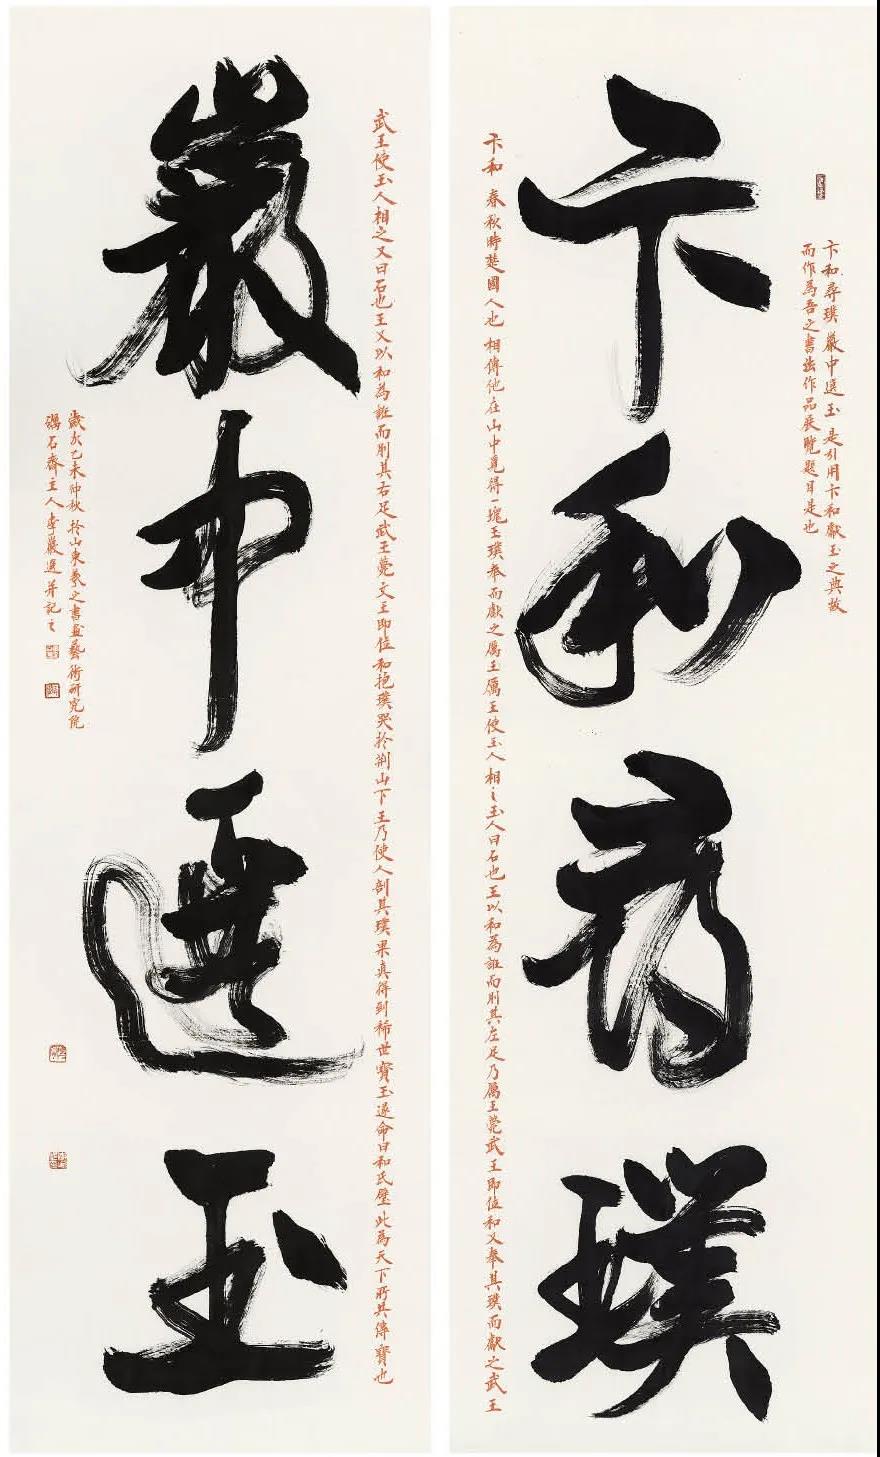 卞和尋璞
卞和尋璞 巖中選玉 是引用卞和獻玉之典故
而作為吾之書法作品展覽題目是也
卞和 春秋時楚國人也 相傳他在山中覓得一塊玉璞奉而獻之厲王厲王使玉人相之玉人曰石也王以和為誑而刖其左足乃厲王薨武王即位和又奉其璞而獻之武王
武王使玉人相之又曰石也王又以和為誑而刖其右足武王薨文王即位和抱璞哭於荆山下王乃使人剖其璞果真得到稀世寶玉遂命曰和氏璧此為天下所共傳寶也
巖中選玉
歲次乙未仲秋於山東羲之書畫藝術研究院
礪石齋主人李巖選并記之